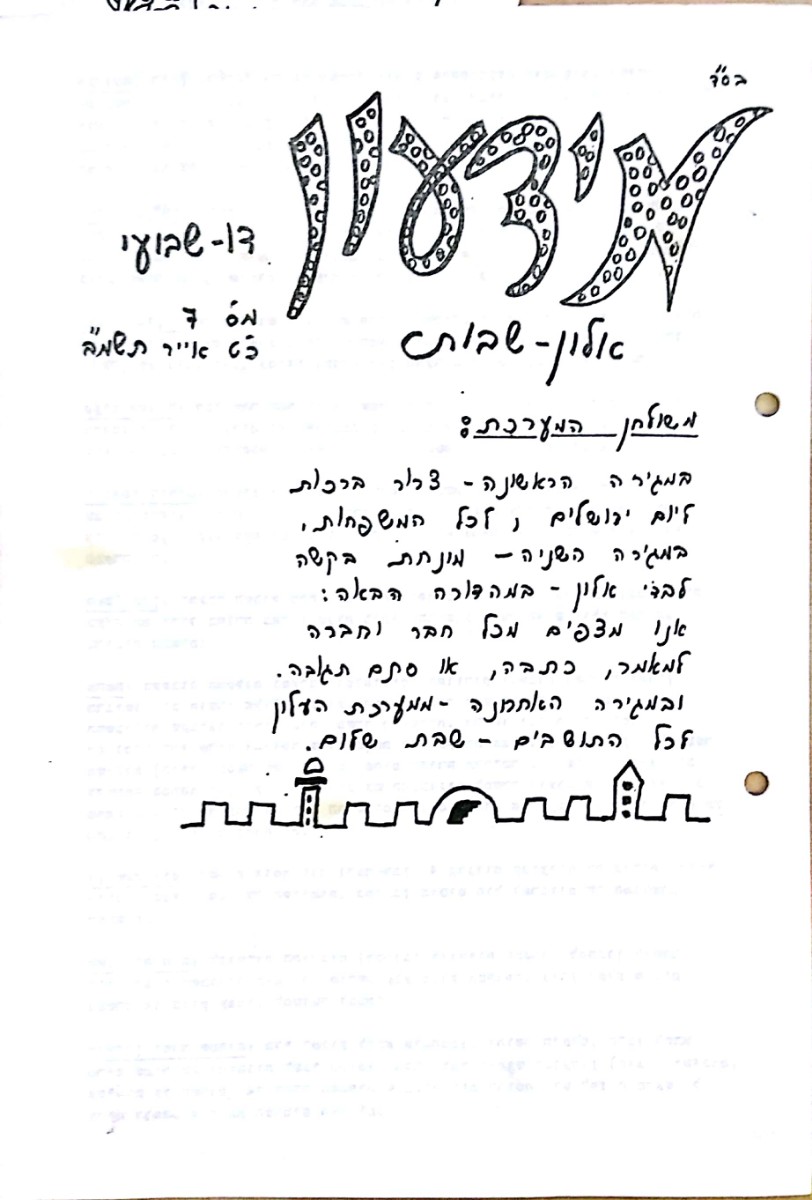 בס"ד
מידעון
דו-שבועי
מס' 7
כ"ט אייר תשמ"ב
אלון-שבות
משולחן המערכת:
במגירה הראשונה - צרור ברכות
ליום ירושלים, לכל המשפחות,
במגירה השניה - מונחת בקשה
לבני אלון - במהדורה הבאה:
אנו מצפים מכל חבר וחברה
למאמר, כתבה, או סתם תגובה.
ובמגירה האחרונה - ממערכת העלון
לכל התושבים - שבת שלום.